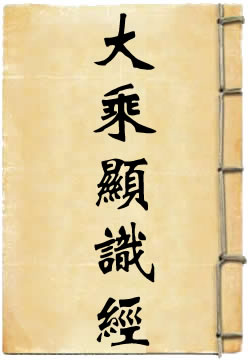 大乘顯識經